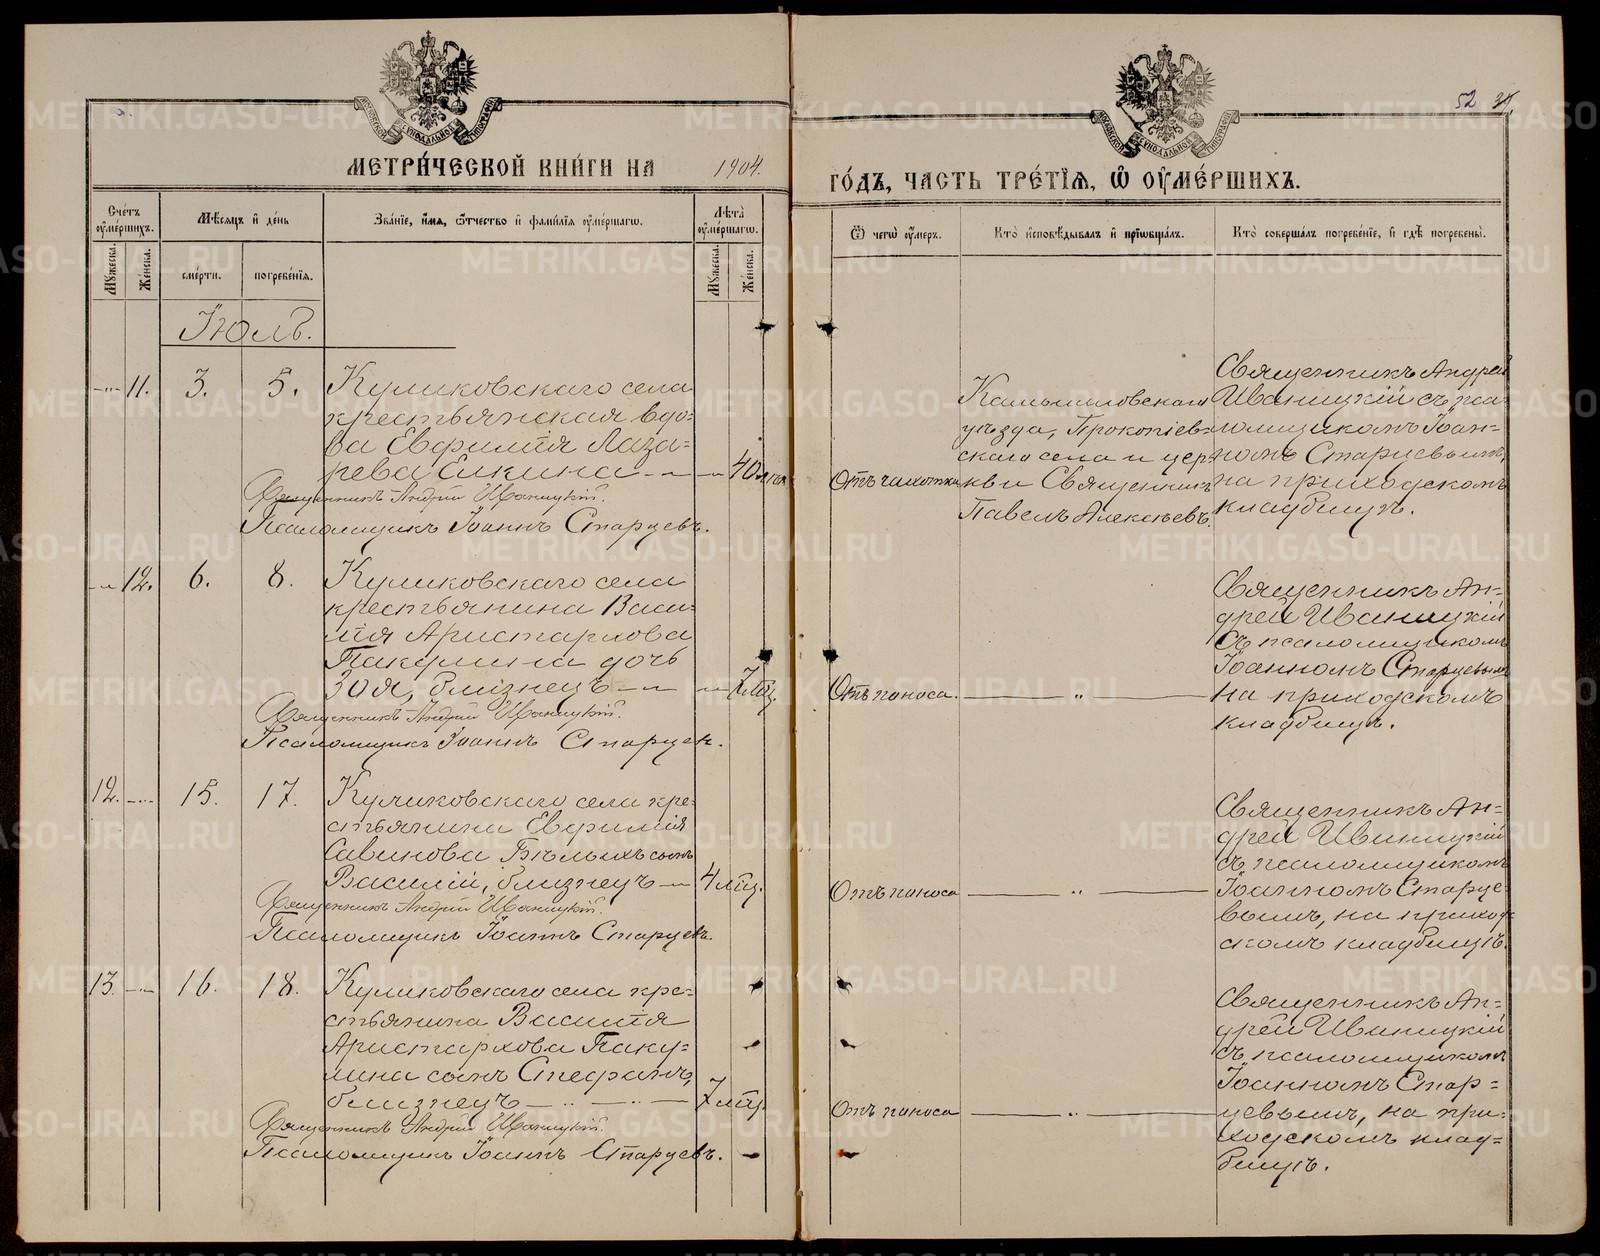 52
МЕТРИ́ЧЕСКОЙ КНИ́ГИ НА 1904.
ГО́ДЪ, ЧАСТЬ ТРЕ́ТІЯ, Ѽ ОУМЕ́РШИХЪ.
Сче́тъ оуме́ршихъ.
Мꙋжеска.
Же́нска.
Мѣ́сяцъ и де́нь
сме́рти.
погребе́нія.
Зва́ніе, и́мя, ѻ́тчество и фами́лія оуме́ршагѡ.
Лѣ́та оуме́ршагѡ.
Мꙋжеска.
Же́нска.
Ѿ чегѡ̀ оу́меръ.
Кто̀ исповѣ́дывалъ и пріѡбща́лъ.
Кто̀ соверша́лъ погребе́ніе, и гдѣ̀ погребены̀.
Іюль.
11. 3. 5.
Куликовскаго села
крестьянская вдо=
ва Евфимія Лаза=
рева Елкина 40 лѣтъ
Священникъ Андрей Иваницкій.
Псаломщикъ Іоаннъ Старцевъ.
Отъ чахотки
Камышловскаго
уѣзда, Прокопіев=
скаго села и цер=
кви Священникъ
Павелъ Алексѣевъ.
Священникъ Андрей
Иваницкій съ пса=
ломщикомъ Іоан=
номъ Старцевымъ,
на приходскомъ
кладбищѣ.
12. 6. 8.
Куликовскаго села
крестьянина Васи=
лія Аристархова
Пакулина дочь
Зоя, близнецъ 7 мѣц.
Священникъ Андрей Иваницкій.
Псаломщикъ Іоаннъ Старцевъ.
Отъ поноса. „
Священникъ Ан=
дрей Иваницкій
съ псаломщикомъ
Іоанномъ Старцевымъ
на приходскомъ
кладбищѣ.
12. 15. 17.
Куликовскаго села кре=
стьянина Евфимія
Савинова Бѣлыхъ сынъ
Василій, близнецъ 4 мѣц.
Священникъ Андрей Иваницкій.
Псаломщикъ Іоаннъ Старцевъ.
Отъ поноса „
Священникъ Ан=
дрей Иваницкій
съ псаломщикомъ
Іоанномъ Старце=
вымъ, на приход=
скомъ кладбищѣ.
13. 16. 18.
Куликовскаго села кре=
стьянина Василія
Аристархова Паку=
лина сынъ Стефанъ,
близнецъ 7 мѣц.
Священникъ Андрей Иваницкій.
Псаломщикъ Іоаннъ Старцевъ.
Отъ поноса „
Священникъ Ан=
дрей Иваницкій
съ псаломщикомъ
Іоанномъ Стар=
цевымъ, на при=
ходскомъ клад=
бищѣ.
METRIKI.GASO-URAL.RU